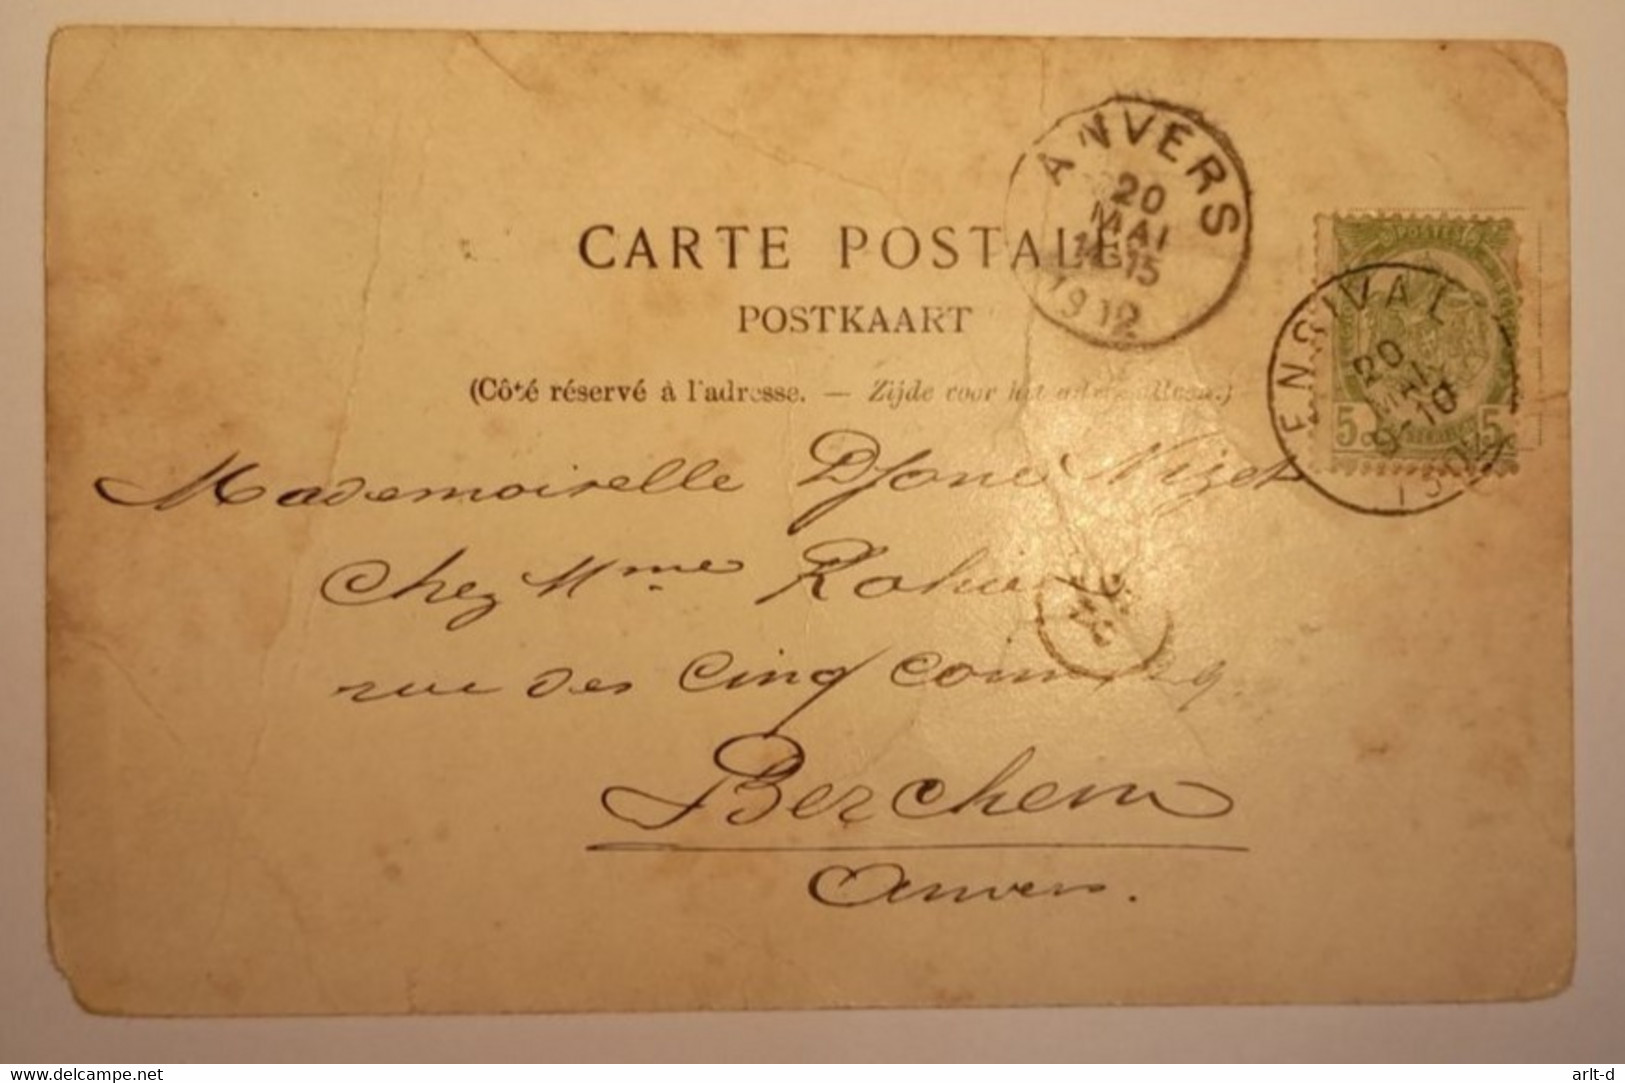 ANVERS
20
MAI
14-15
1902
CARTE POSTALE
POSTKAART
(Côté réservé à l'adresse. — Zijde voor het
POSTES
5 5
ENSIVAL
20
MAI
9-10
1902
Mademoiselle Nizet
Chez Mme
rue des Cinq
Berchem
Anvers.
www.delcampe.net
arlt-d